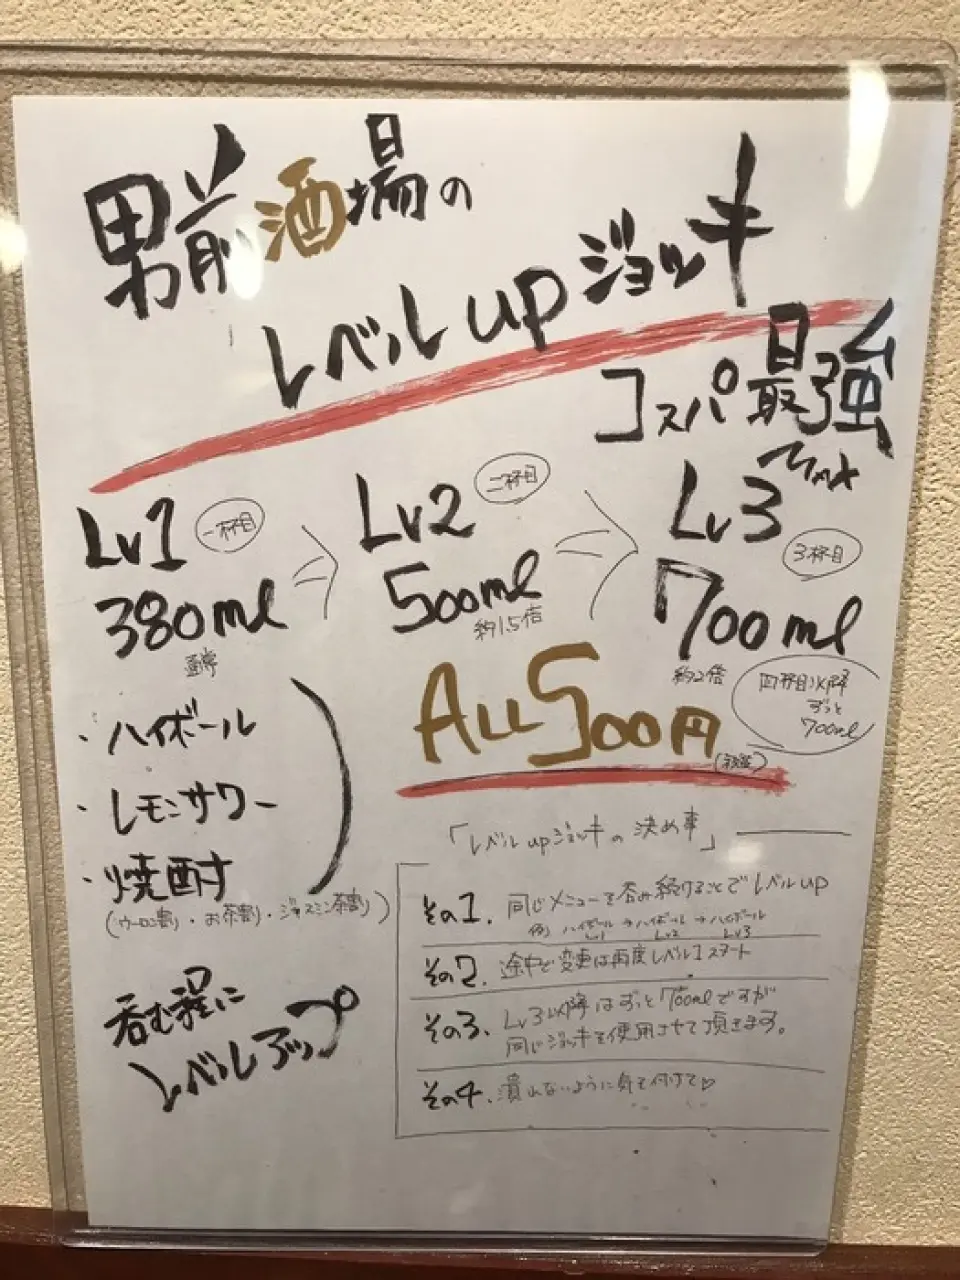 男前酒場の
レベルupジョッキ
コスパ最強
Lv1 一杯目
380ml
通常
Lv2 二杯目
500ml
約1.5倍
Lv3 MAX
3杯目
700ml
約2倍
四杯目以降
ずっと
700ml
ALL500円
(税抜)
・ハイボール
・レモンサワー
・焼酎
(ウーロン割り・お茶割り・ジャスミン茶割り)
呑む程に
レベルアップ
「レベルupジョッキの決め事」
その1. 同じメニューを呑み続けることでレベルup
例) ハイボール→ハイボール→ハイボール
Lv1 Lv2 Lv3
その2. 途中で変更は再度レベル1スタート
その3. Lv3以降はずっと700mlですが
同じジョッキを使用させて頂きます。
その4. 潰れないように気を付けて♡